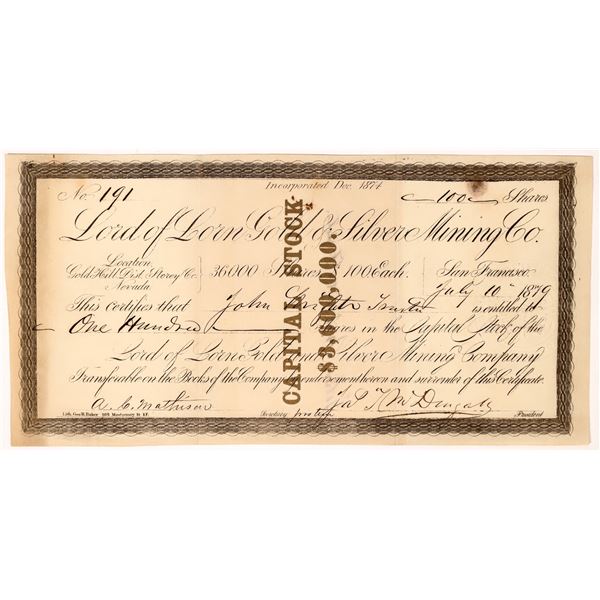 Incorporated Dec. 1874
No. 191 100 Shares
Lord of Lorn Gold & Silver Mining Co.
Location
Gold Hill Dist. Storey Co.
Nevada.
36000 Shares $100 Each.
San Francisco
July 10th 1879
This certifies that John Trustee is entitled to
One Hundred Shares in the Capital Stock of the
Lord of Lorn Gold and Silver Mining Company
Transferable on the Books of the Company by endorsement hereon and surrender of this Certificate.
CAPITAL STOCK
$3,600,000.
A. C. Mathison Jas T. McDougall
Lith. Geo. H. Baker 408 Montgomery St. S.F. Secretary protem President